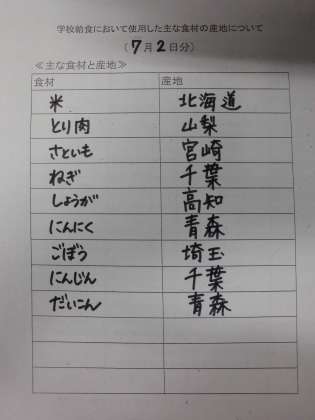 学校給食において使用した主な食材の産地について
（7月2日分）
≪主な食材と産地≫
食材 産地
米 北海道
とり肉 山梨
さといも 宮崎
ねぎ 千葉
しょうが 高知
にんにく 青森
ごぼう 埼玉
にんじん 千葉
だいこん 青森